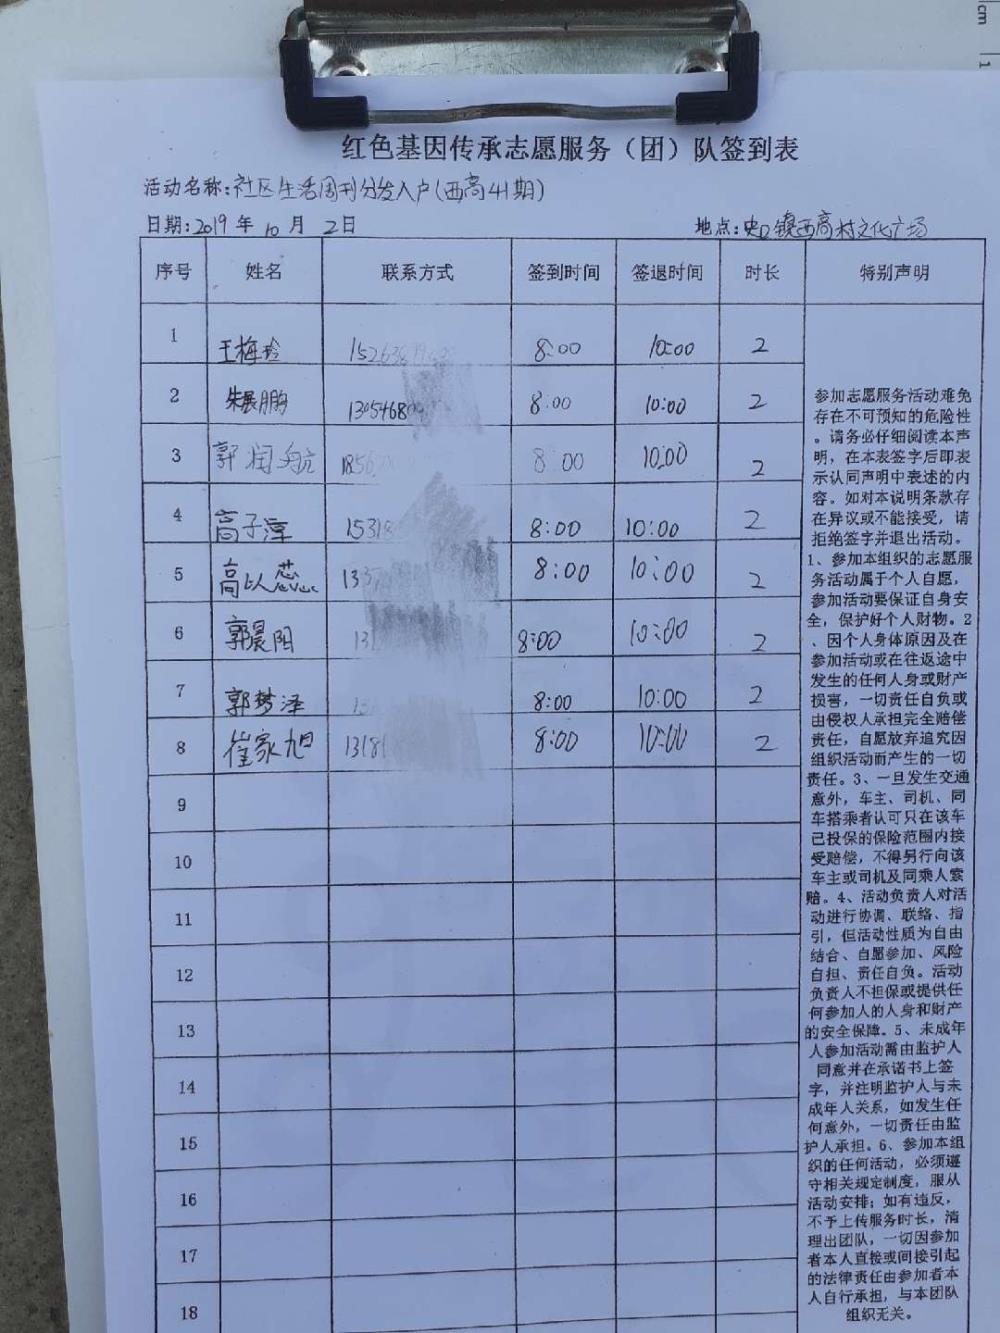 cm
1
红色基因传承志愿服务（团）队签到表
活动名称:社区生活周刊分发入户(西高41期)
日期:2019 年 10 月 2日 地点:史口镇西高村文化广场
序号 姓名 联系方式 签到时间 签退时间 时长 特别声明
1 王梅玲 8:00 10:00 2
2 朱展鹏 8:00 10:00 2
3 郭润航 8:00 10:00 2
4 高子淳 8:00 10:00 2
5 高以蕊 8:00 10:00 2
6 郭晨阳 8:00 10:00 2
7 郭梦泽 8:00 10:00 2
8 崔家旭 8:00 10:00 2
9
10
11
12
13
14
15
16
17
18
参加志愿服务活动难免
存在不可预知的危险性
。请务必仔细阅读本声
明，在本表签字后即表
示认同声明中表述的内
容。如对本说明条款存
在异议或不能接受，请
拒绝签字并退出活动。
1、参加本组织的志愿服
务活动属于个人自愿，
参加活动要保证自身安
全，保护好个人财物。2
、因个人身体原因及在
参加活动或在往返途中
发生的任何人身或财产
损害，一切责任自负或
由侵权人承担完全赔偿
责任，自愿放弃追究因
组织活动而产生的一切
责任。3、一旦发生交通
意外，车主、司机、同
车搭乘者认可只在该车
已投保的保险范围内接
受赔偿，不得另行向该
车主或司机及同乘人索
赔。4、活动负责人对活
动进行协调、联络、指
引，但活动性质为自由
结合、自愿参加、风险
自担、责任自负。活动
负责人不担保或提供任
何参加人的人身和财产
的安全保障。5、未成年
人参加活动需由监护人
同意并在承诺书上签
字，并注明监护人与未
成年人关系，如发生任
何意外，一切责任由监
护人承担。6、参加本组
织的任何活动，必须遵
守相关规定制度，服从
活动安排；如有违反，
不予上传服务时长，清
理出团队，一切因参加
者本人直接或间接引起
的法律责任由参加者本
人自行承担，与本团队
组织无关。